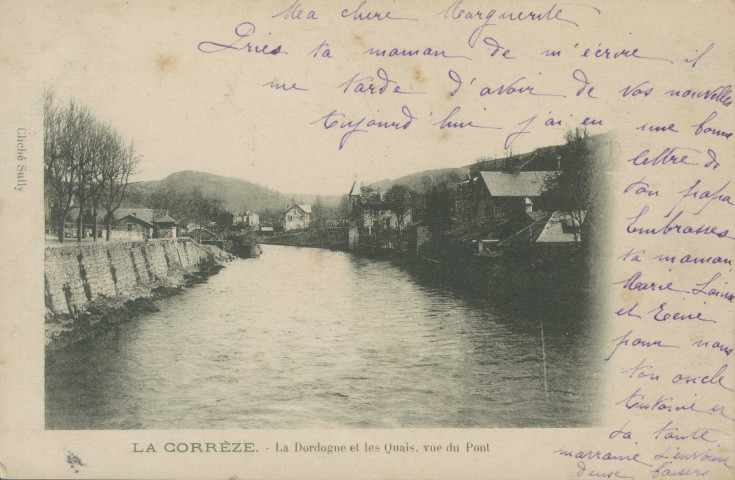 Ma chère Marguerite
Pries ta maman de m'écrire il
me tarde d'avoir de vos nouvelles
Aujourd'hui j'ai eu une bonne
lettre de
ton papa
Embrasses
ta maman
Marie Louise
et René
pour nous
ton oncle
Antoine et
ta tante
marraine
baisers
Cliché Sully
LA CORRÈZE. - La Dordogne et les Quais, vue du Pont